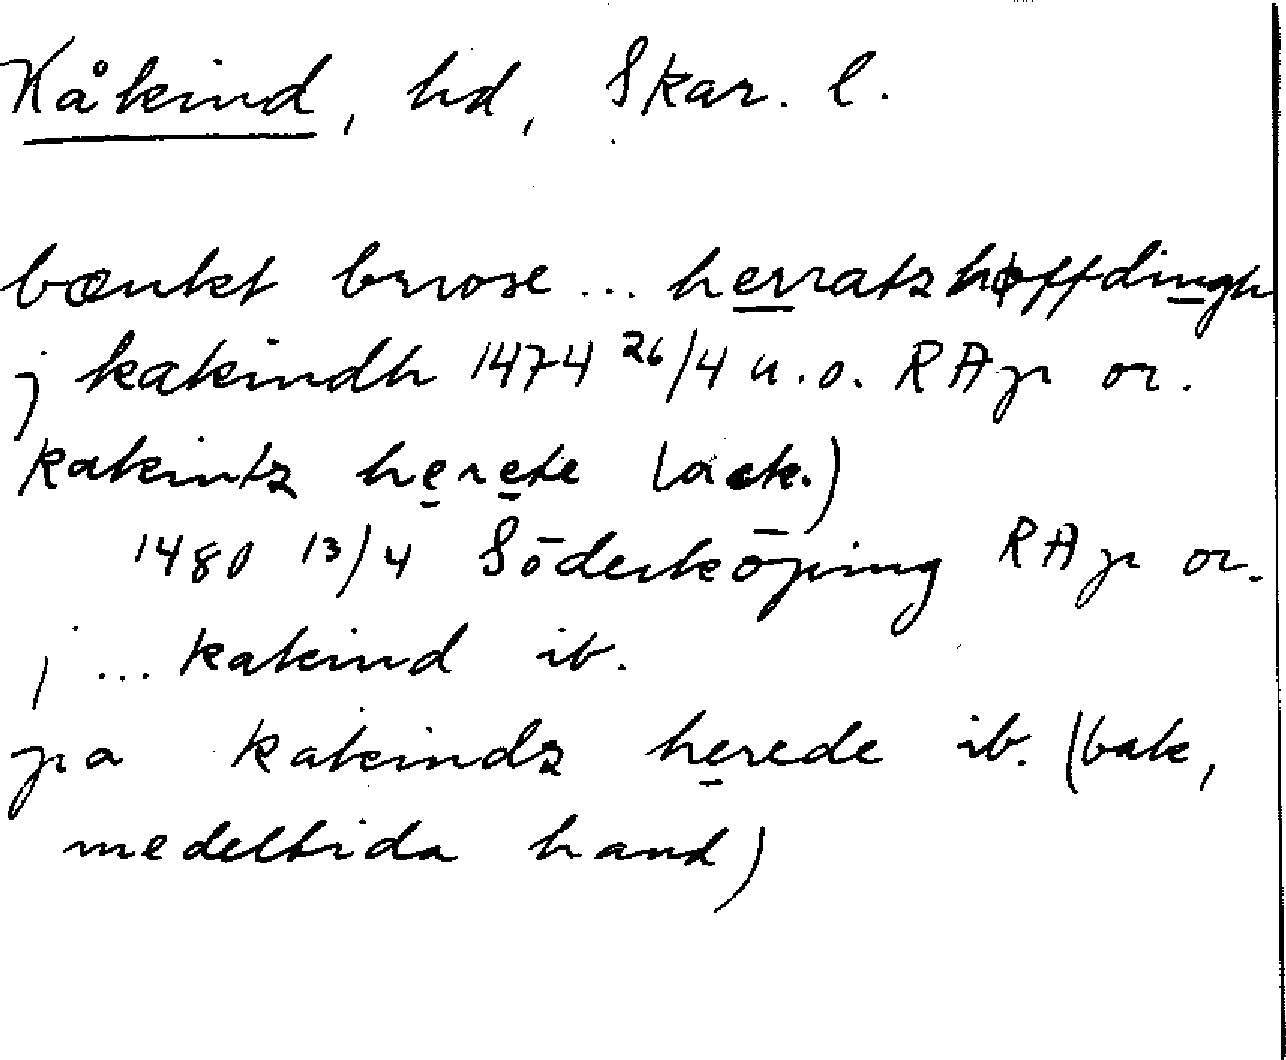 Kåkind, hd, Skar. l.
bænkt brrose ... herratzhøffdingh
j kakindh 1474 26/4 u.o. RAp or.
kakintz herete (ack.)
1480 13/4 Söderköping RAp or.
j ... kakind ib.
pa kakindz herede ib. (bak,
medeltida hand)